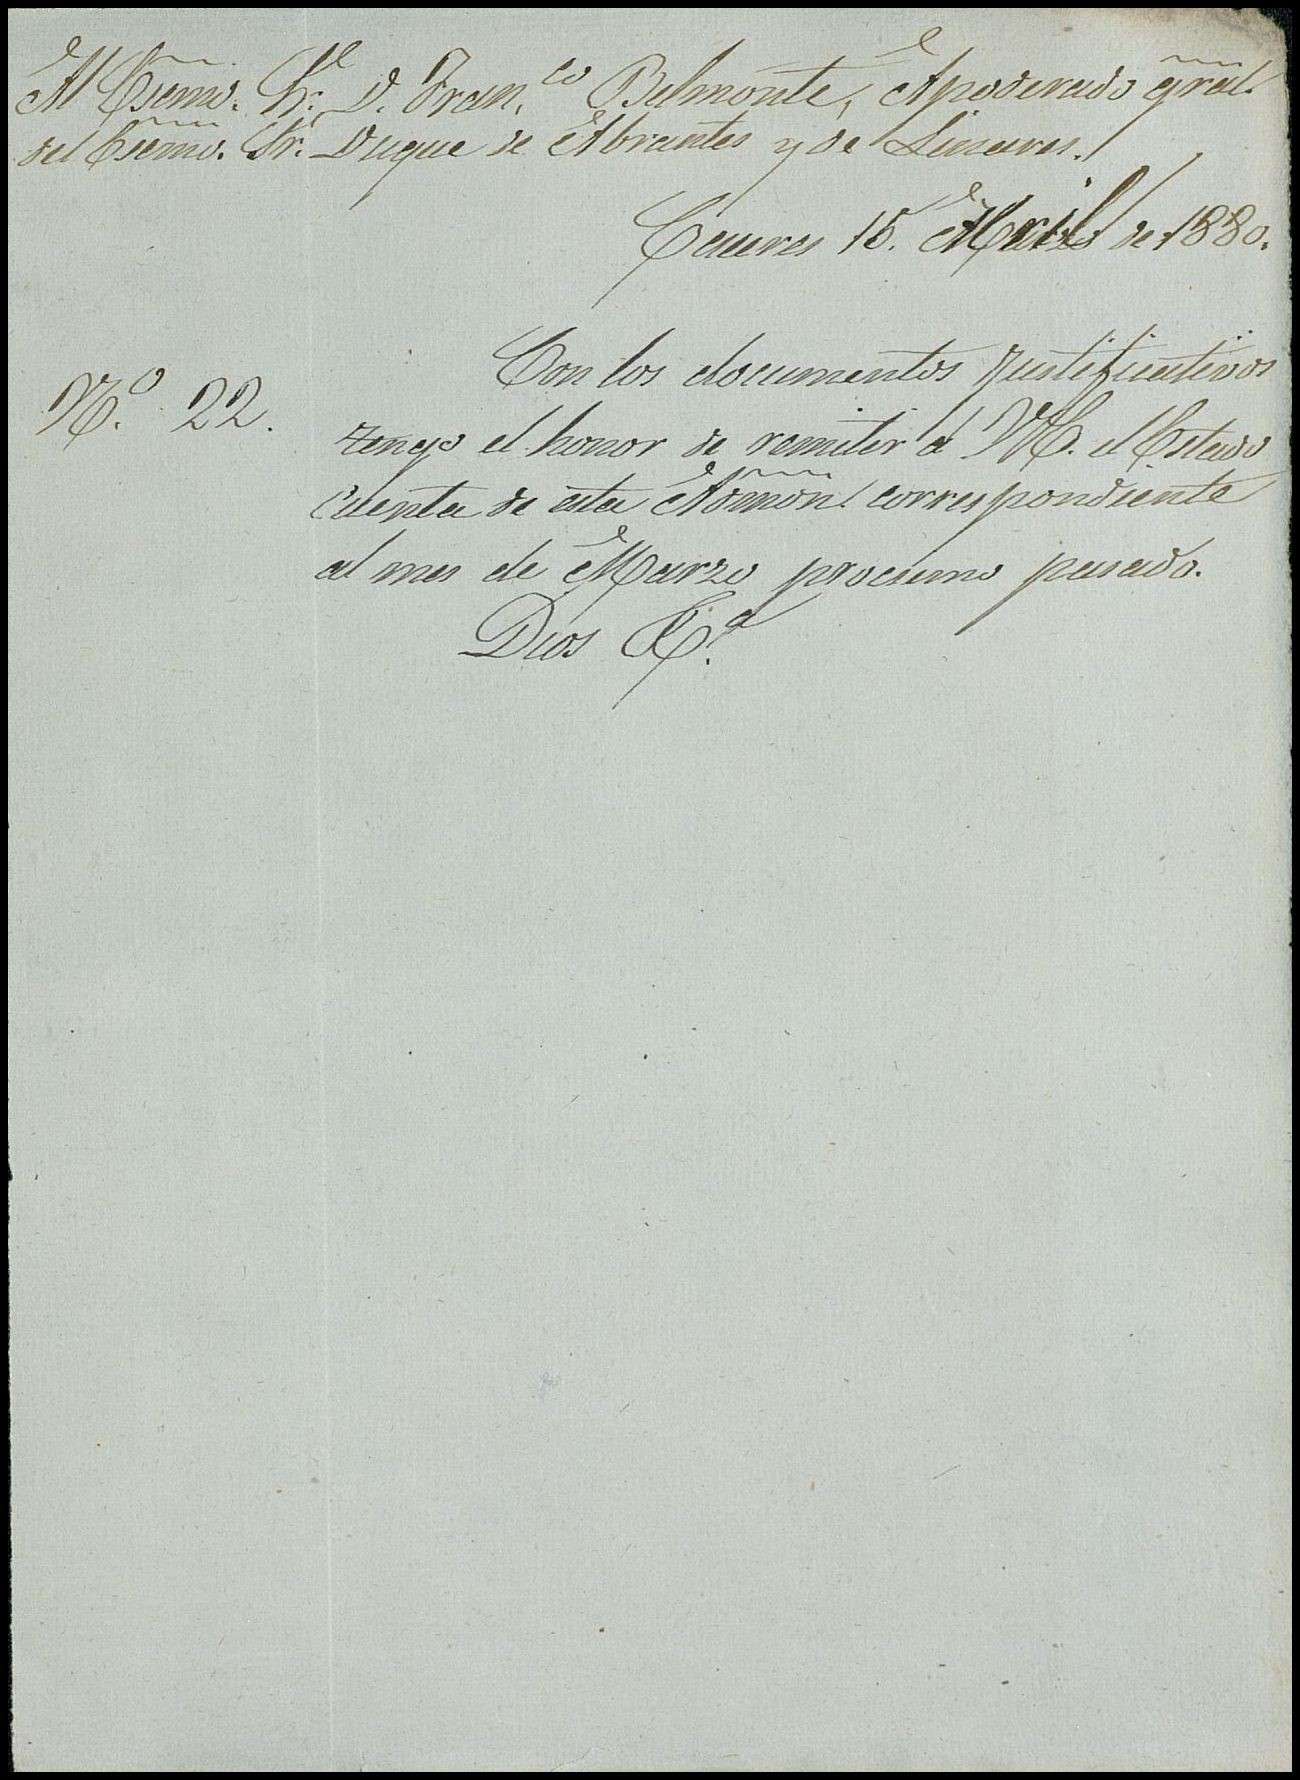 Al Escmo. Sr. D. Fran.co Belmonte, Apoderado gral.
del Escmo. Sr. Duque de Abrantes y de Linares.
Caceres 15. Abril de 1880.
Con los documentos justificativos
N.o 22.
tengo el honor de remitir á V.E. el Estado
Cuenta de esta Admon. correspondiente
al mes de Marzo procsimo pasado.
Dios &.a